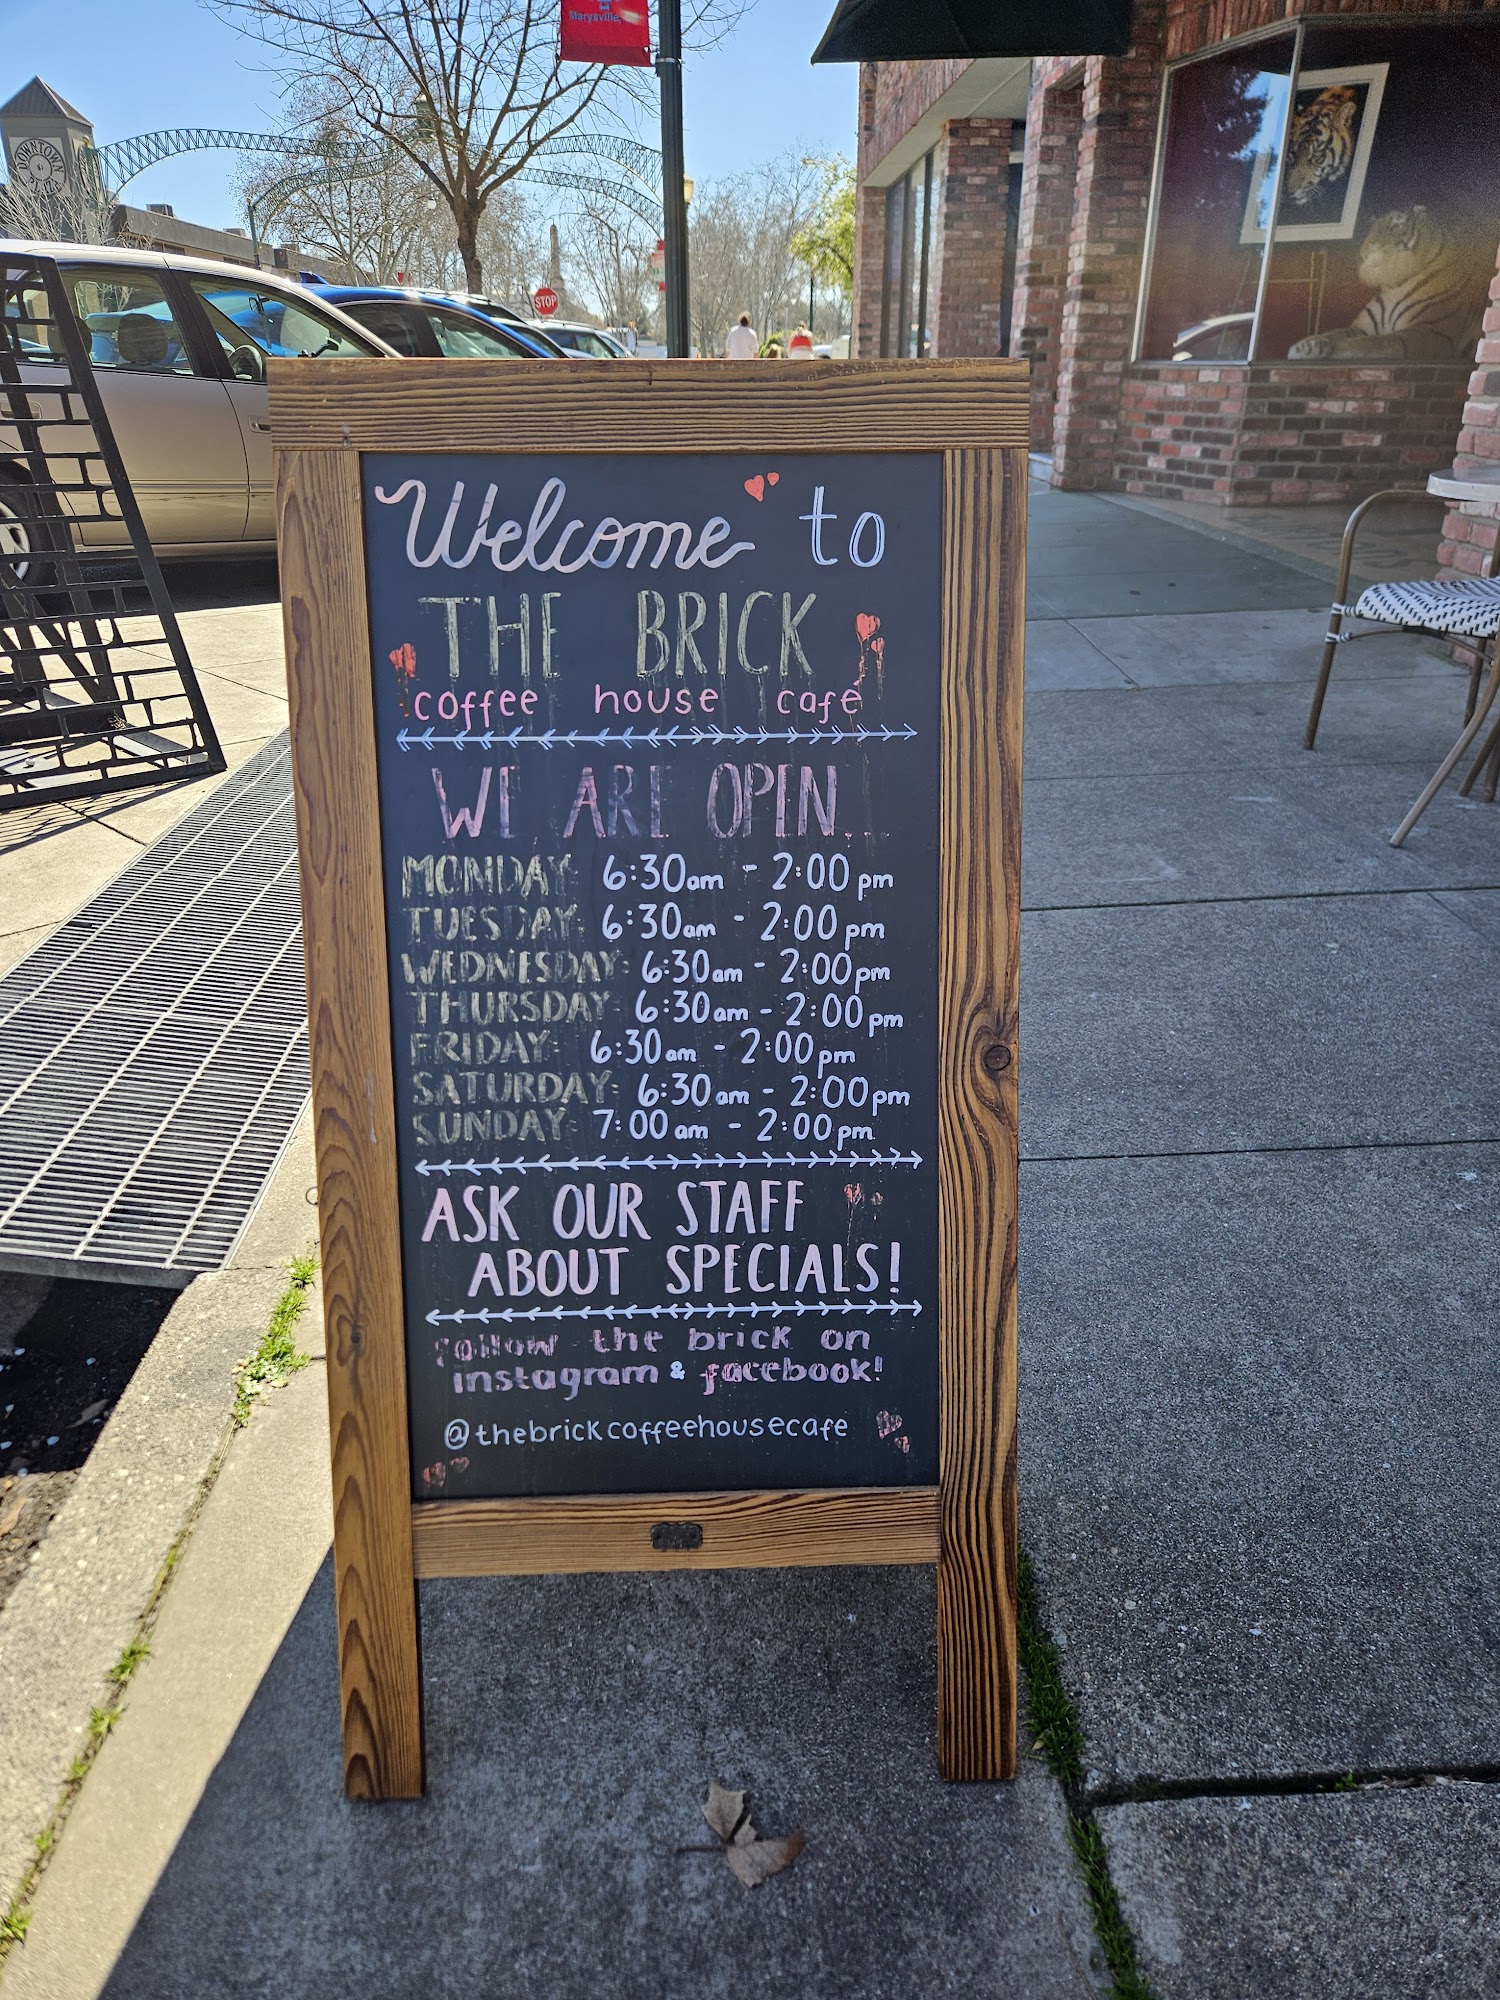 Marysville,
DOWNTOWN
PLAZA
STOP
Welcome to
THE BRICK
coffee house cafe
WE ARE OPEN...
MONDAY: 6:30am - 2:00pm
TUESDAY: 6:30am - 2:00pm
WEDNESDAY: 6:30am - 2:00pm
THURSDAY: 6:30am - 2:00pm
FRIDAY: 6:30am - 2:00pm
SATURDAY: 6:30am - 2:00pm
SUNDAY: 7:00am - 2:00pm
ASK OUR STAFF
ABOUT SPECIALS!
follow the brick on
instagram & facebook!
@thebrickcoffeehousecafe